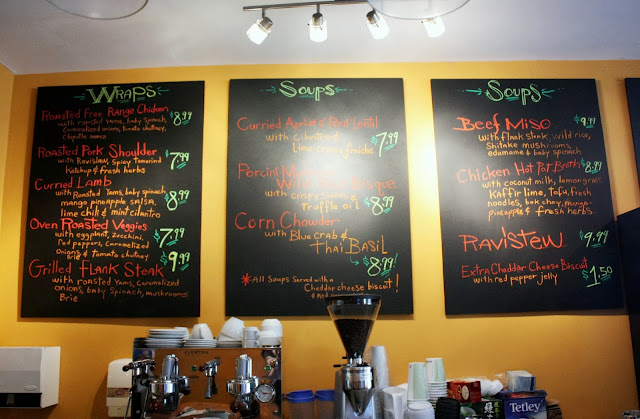 WRAPS
ROASTED FREE RANGE CHICKEN
with roasted yams, baby spinach, $8.99
Caramelized onions, tomato chutney,
Chipotle mayo
ROASTED PORK SHOULDER
with Ravislaw, Spicy Tamarind $7.99
Ketchup & fresh herbs
CURRIED LAMB
with Roasted Yams, baby spinach, $8.99
mango pineapple SALSA,
lime chili & mint cilantro
OVEN ROASTED VEGGIES $7.99
with eggplant, zucchini,
Red peppers, Caramelized
Onions, Brie & tomato chutney $9.99
Grilled Flank Steak
with roasted yams, Caramalized
onions, baby Spinach, mushrooms
Brie
SOUPS
Curried & Red Lentil
with Cilantro & $7.99
lime crème fraîche
PORCINI
Wild Bisque
with crispy
Truffle oil $8.99
CORN CHOWDER
with Blue CRAB &
THAI BASIL
$8.99!
*All Soups Served with a
Cheddar cheese biscuit!
SOUPS
BEEF MISO $9.99
with flank steak, wild rice,
Shitake mushrooms,
edamame & baby spinach
Chicken Hot Pot Broth $8.99
with coconut milk, lemongrass,
Kaffir lime, Tofu, fresh
noodles, bok choy, mango-
pineapple & fresh herbs
RAVISTEW $9.99
Extra Cheddar Cheese Biscuit
with red pepper jelly $1.50
Tetley